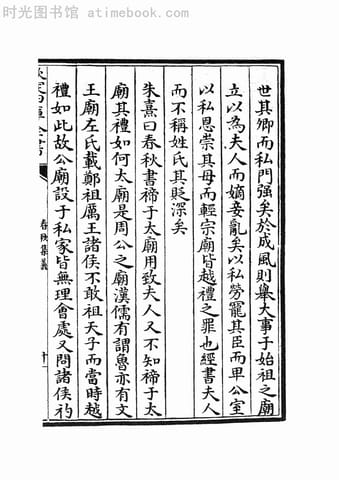 时光图书馆 - atimebook.com
世其卿而私門强矣於成風則舉大事于始祖之廟
立以為夫人而嫡妾亂矣以私勞寵其臣而卑公室
以私恩崇其母而輕宗廟皆越禮之罪也經書夫人
而不稱姓氏其貶深矣
朱熹曰春秋書禘于太廟用致夫人又不知禘于太
廟其禮如何太廟是周公之廟漢儒有謂魯亦有文
王廟左氏載鄭祖厲王諸侯不敢祖天子而當時越
禮如此故公廟設于私家皆無理會處又問諸侯礿
春秋集義